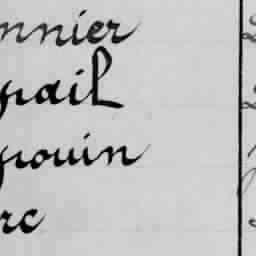 nnier
pail
pouin
rc